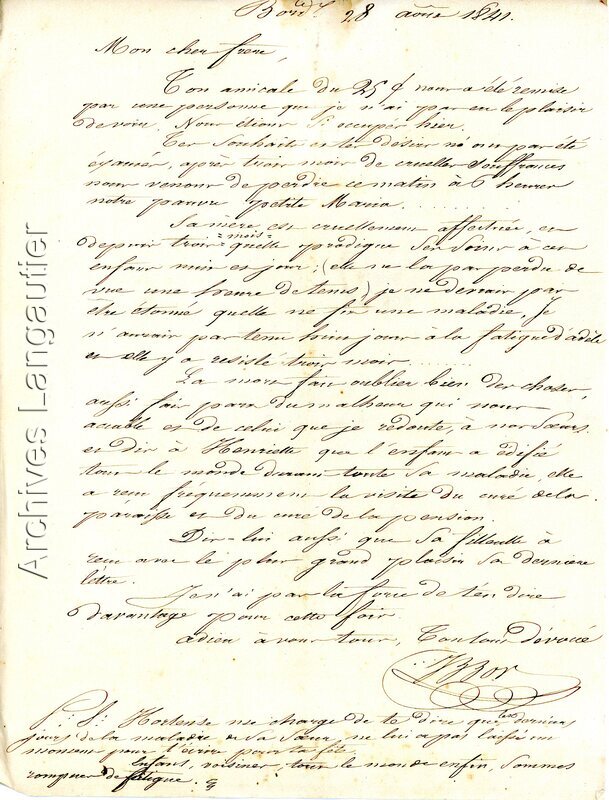 Bord.x 28 août 1841.
Mon cher frere,
Ton amicale du 25 ct nous a été remise
par une personne que je n'ai pas eu le plaisir
de voir. Nous étions si occupés hier.
Tes souhaits et tes desirs n'ont pas été
exaucés, après trois mois de cruelles souffrances
nous venons de perdre ce matin à 6 heures
notre pauvre petite Maria.........
Sa mère est cruellement affectée, et
depuis trois =mois= quelle prodigue ses soins à cet
enfant nuit et jour; (elle ne la pas perdu de
vue une heure de tems) je ne devrais pas
être étonné quelle ne fit une maladie, Je
n'aurais pas tenu huit jours à la fatigue d'adèle
et elle y a resisté trois mois........
La mort fait oublier bien des choses,
aussi fais part du malheur qui nous
accable et de celui que je redoute, à nos Sœurs
et dis à Henriette que l'enfant a édifié
tout le monde durant toute sa maladie, elle
a reçu fréquemment la visite du curé de la
paroisse et du curé de la pension.
Dis-lui aussi que sa filleulle à
reçu avec le plus grand plaisir sa dernière
lettre.
Je n'ai pas la force de t'en dire
davantage pour cette fois.
adieu à vous tous, Ton tout dévoué
P.S. Hortense me charge de te dire que les derniers
jours de la maladie de sa Sœur, ne lui a pas laissé un
moment pour t'écrire pour ta fête.
Enfants, voisines, tout le monde enfin, sommes
rompues de fatigue.
Archives Langautier